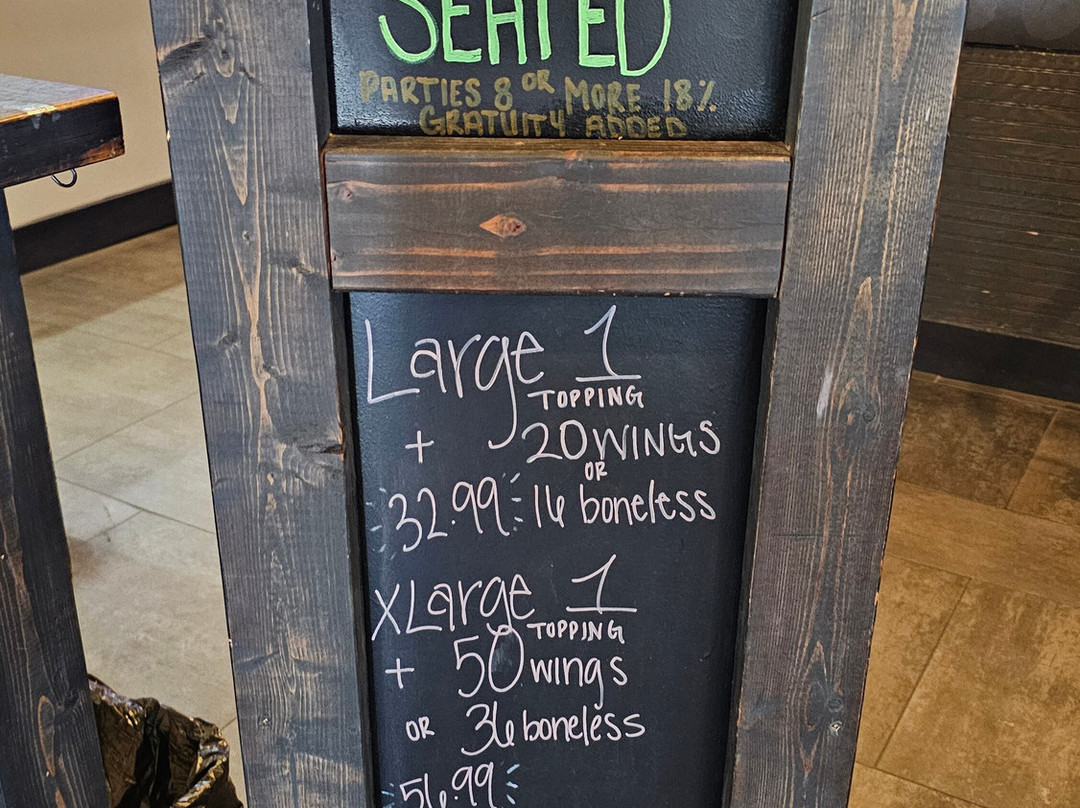 SEATED
PARTIES 8 OR MORE 18%
GRATUITY ADDED
Large 1
TOPPING
+ 20 WINGS
OR
32.99 16 boneless
XLarge 1
TOPPING
+ 50 wings
OR 36 boneless
56.99